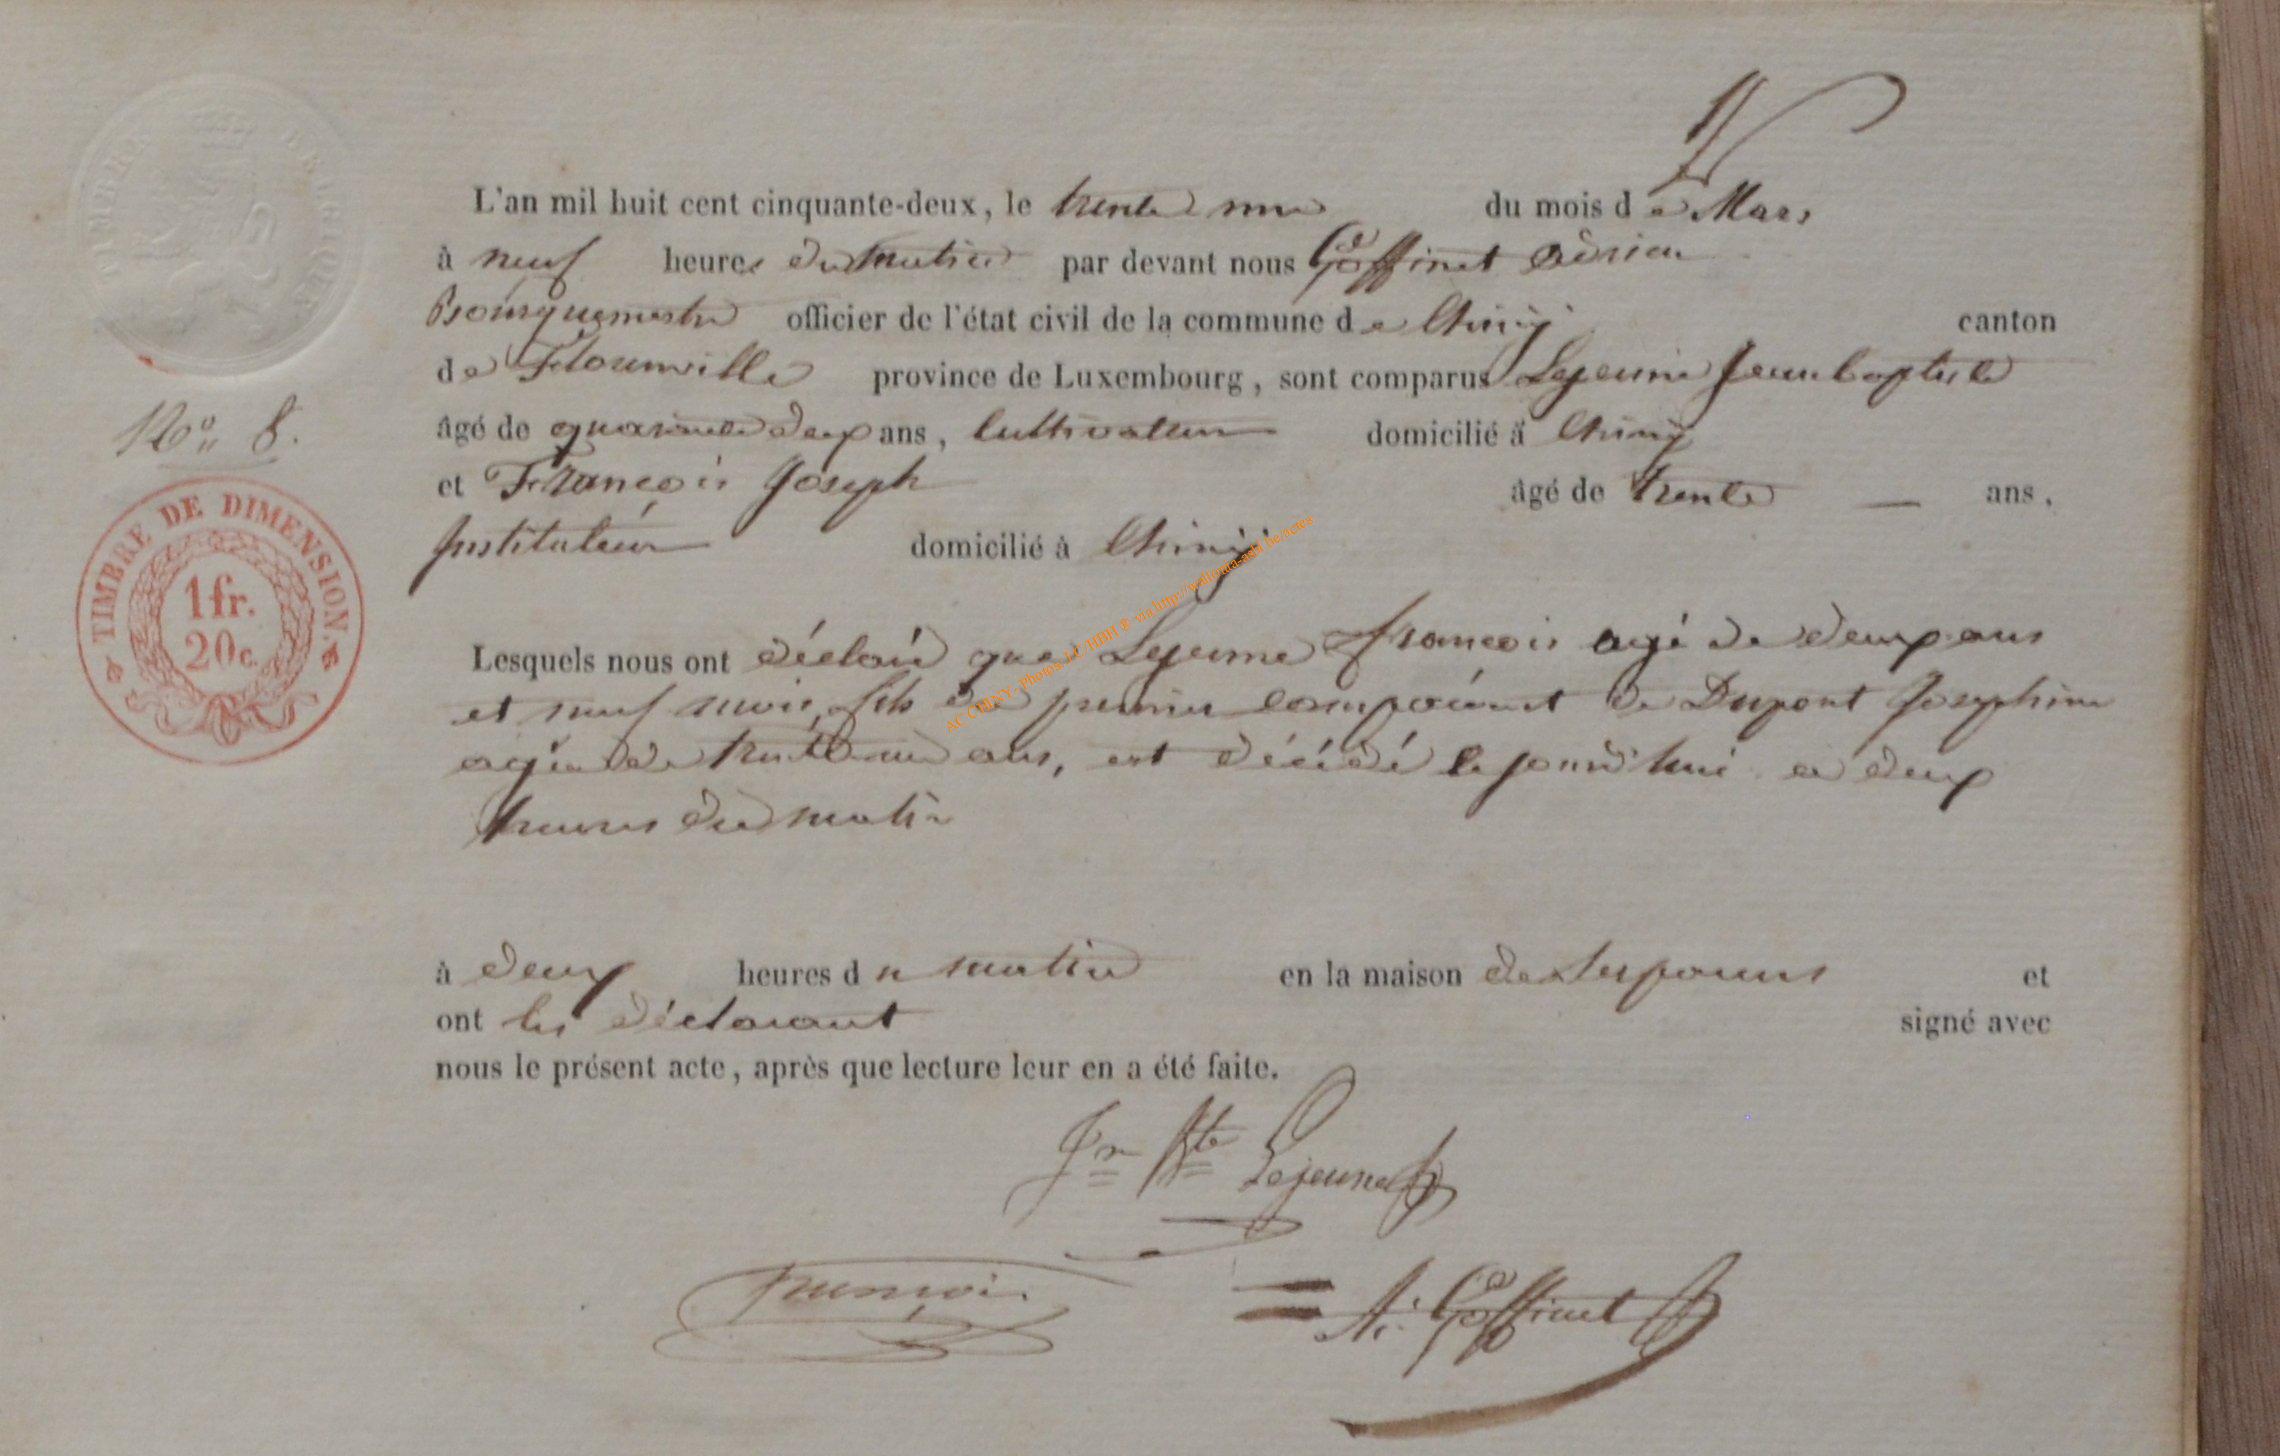 L'an mil huit cent cinquante-deux, le trente une du mois de Mars
à neuf heures du matin par devant nous Goffinet Adrien
Bourguemestre officier de l'état civil de la commune de Chiny canton
de Florenville province de Luxembourg, sont comparus Lejeune Jean baptiste
âgé de quarante deux ans, Cultivateur domicilié à Chiny
et François Joseph âgé de trente — ans,
Instituteur domicilié à Chiny
Lesquels nous ont déclaré que Lejeune François agé de deux ans
et neuf mois, fils du premier comparant et de Dupont Josephine
agée de trente ans, est décédé le jourd'hui à deux
heures du matin
à deux heures du matin en la maison de ses parens et
ont les déclarant signé avec
nous le présent acte, après que lecture leur en a été faite.
Jn Bte Lejeune
François
A. Goffinet
No 8.
TIMBRE DE DIMENSION.
1 fr.
20 c.
AC CHINY- Photos LC HBH ® via http://wallonia-asbl.be/actes